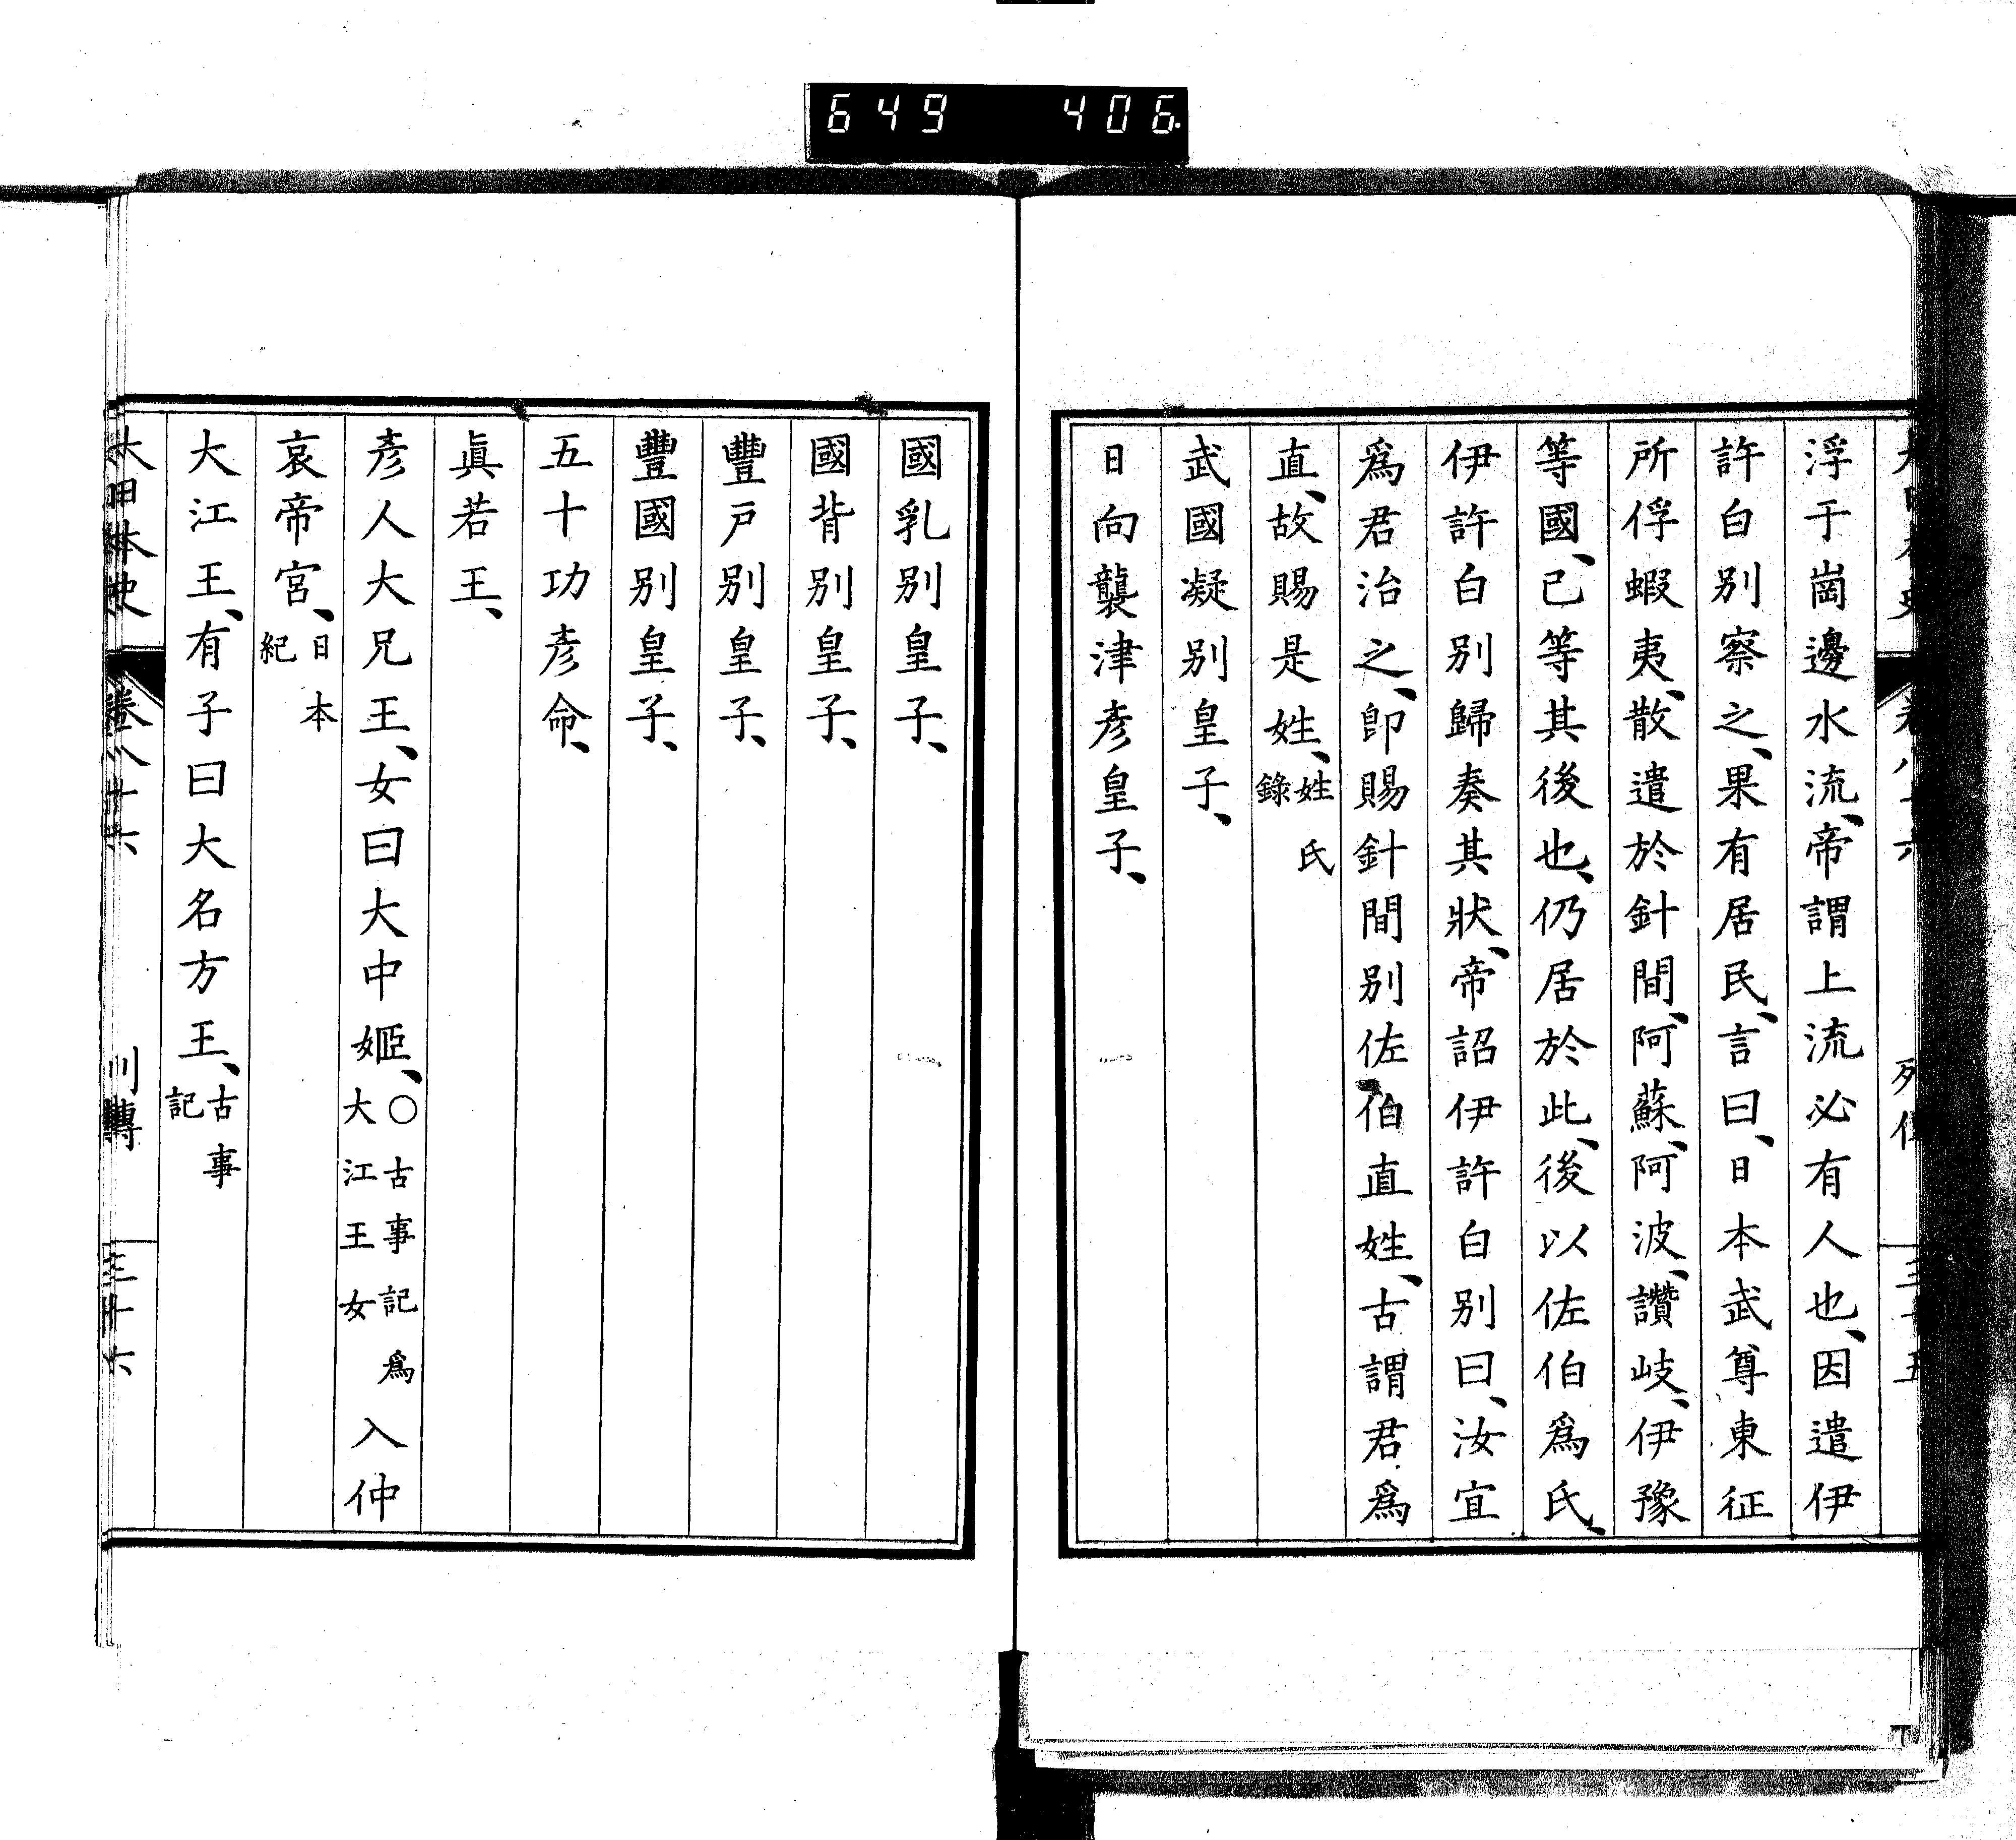 649 406
大日本史 卷八十六 列傳 三十五
浮于崗邊水流、帝謂上流必有人也、因遣伊
許白別察之、果有居民、言曰、日本武尊東征
所俘蝦夷、散遣於針間、阿蘇、阿波、讚岐、伊豫
等國、已等其後也、仍居於此、後以佐伯爲氏、
伊許白別歸奏其狀、帝詔伊許白別曰、汝宜
爲君治之、卽賜針間別佐伯直姓、古謂君爲
直、故賜是姓、姓氏錄
武國凝別皇子、
日向襲津彥皇子、
國乳別皇子、
國背別皇子、
豐戶別皇子、
豐國別皇子、
五十功彥命、
眞若王、
彥人大兄王、女曰大中姬、○古事記爲大江王女入仲
哀帝宮、日本紀
大江王、有子曰大名方王、古事記
大日本史 卷八十六 列傳 三十六